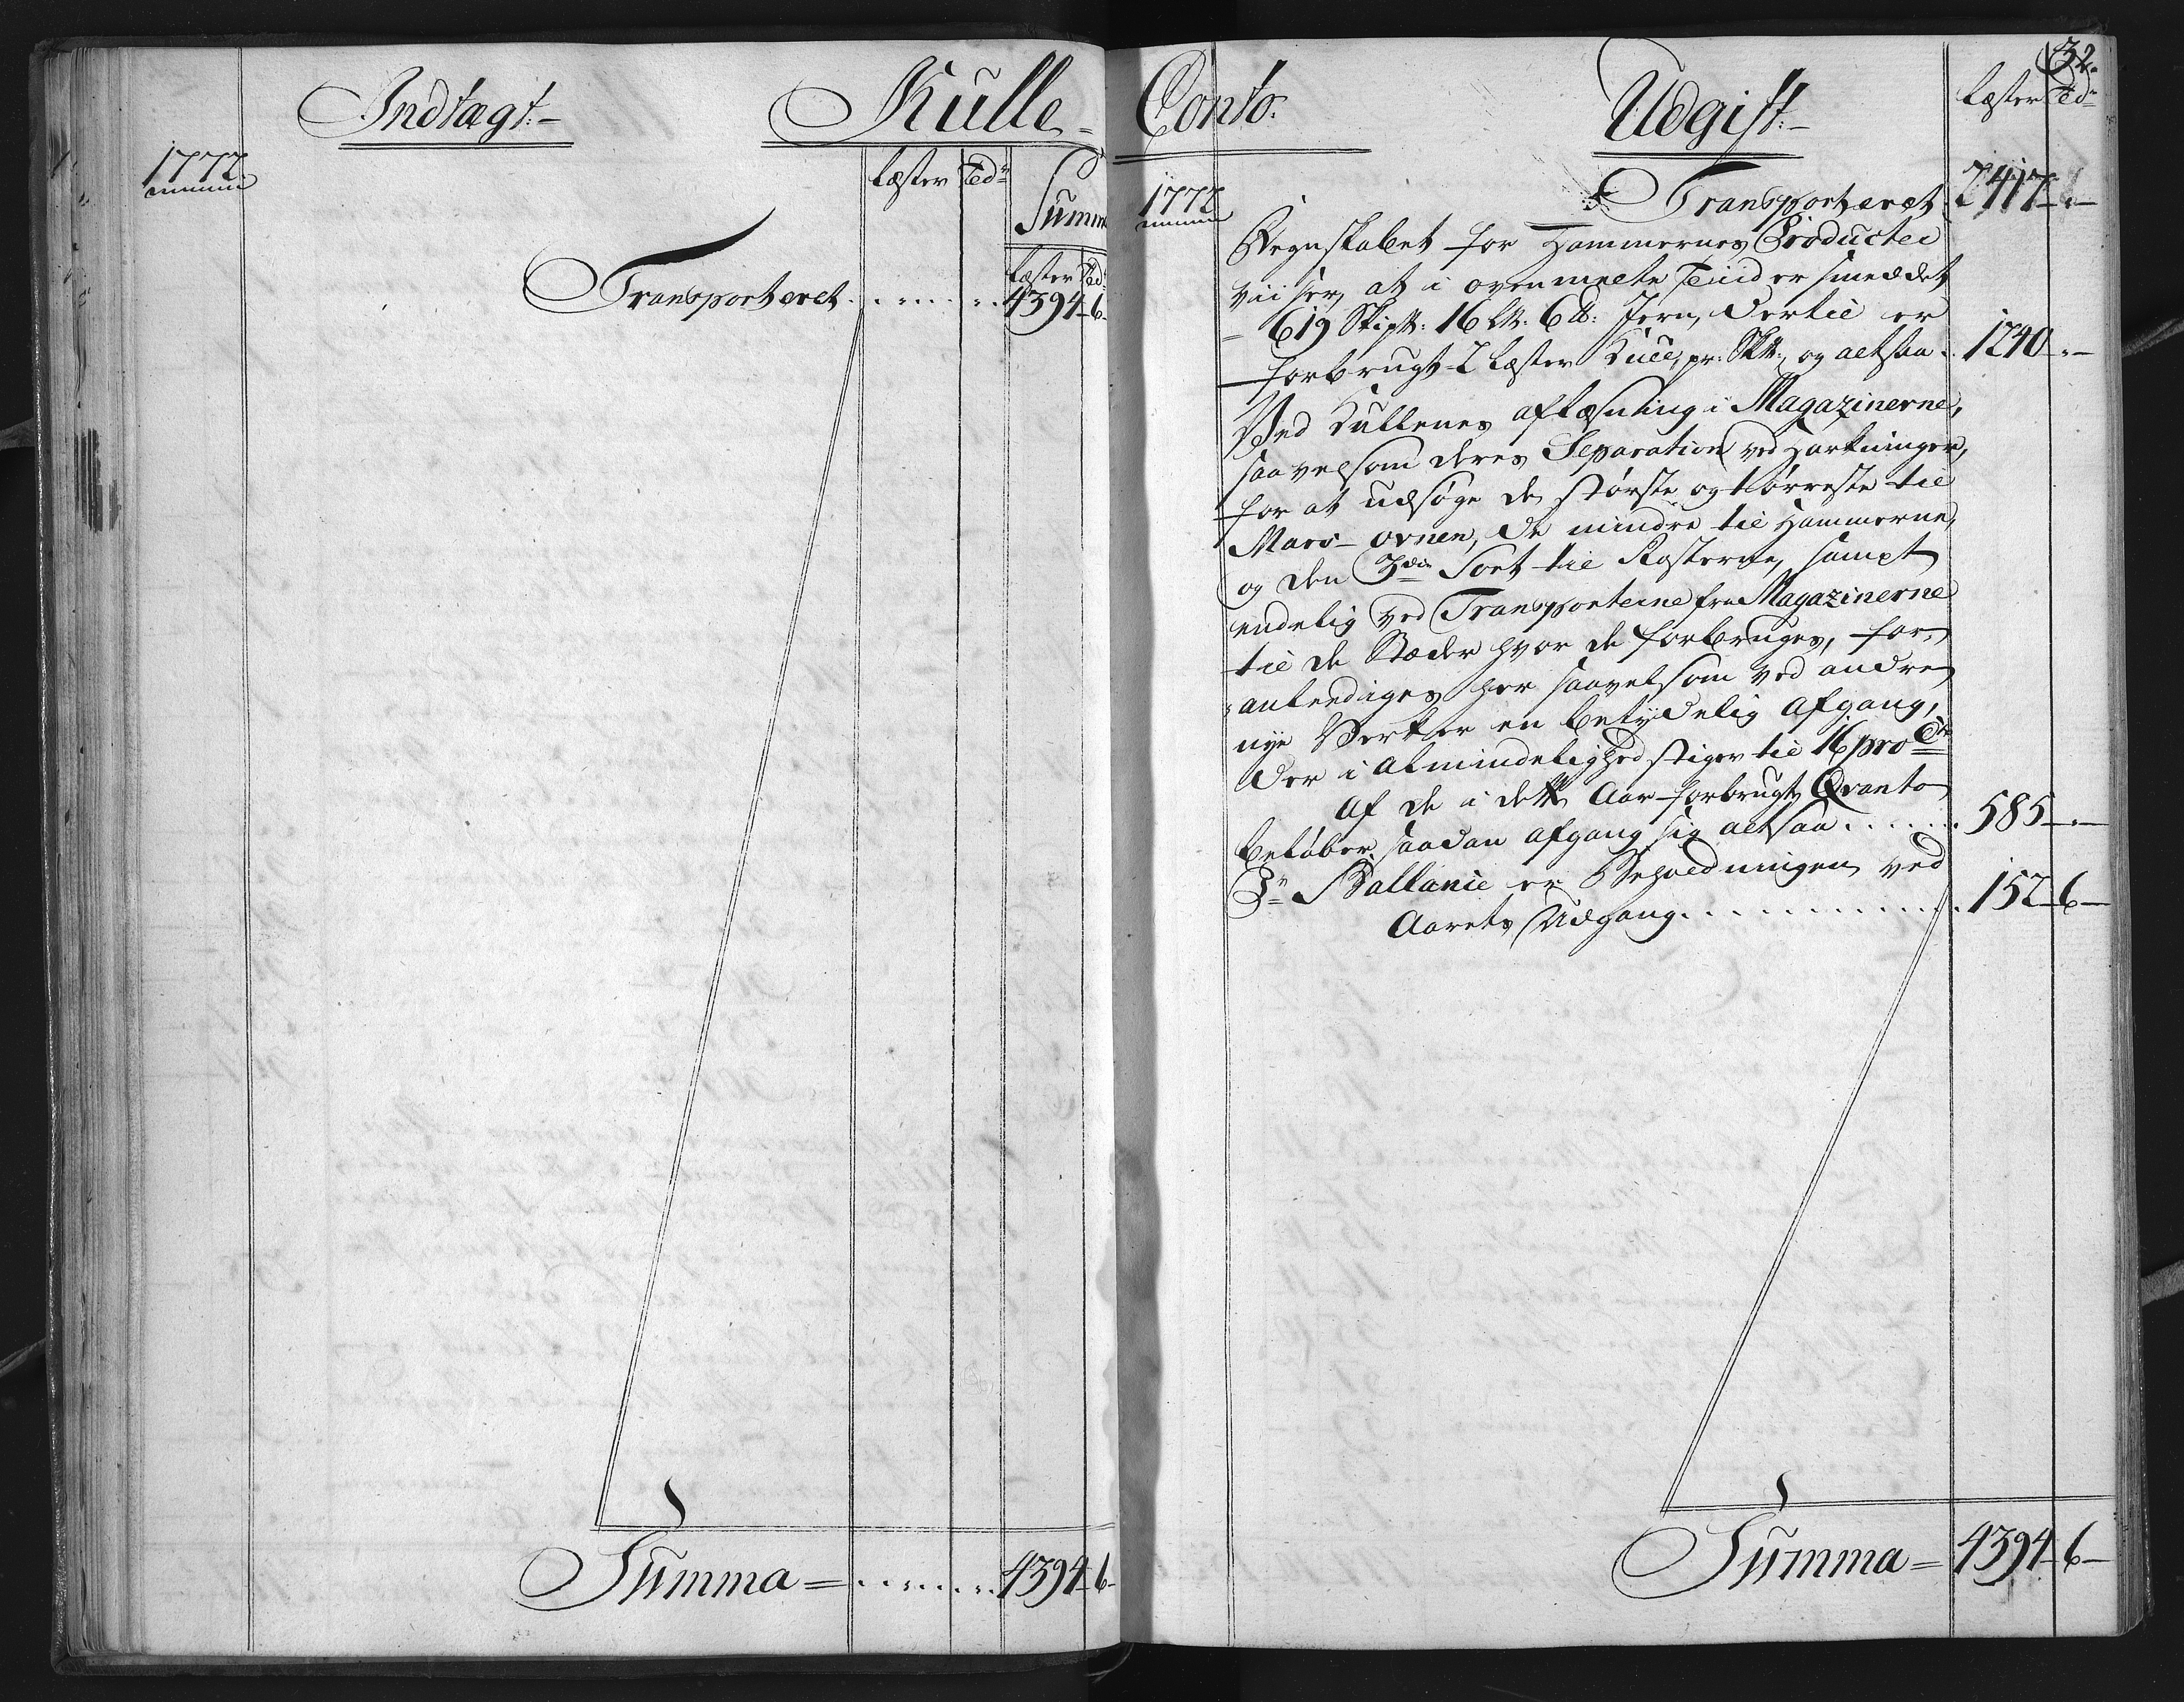 Indtægt.
Kulle
1772.
Læster
Tdr
Summa
Læster Tdr
Transporteret 4394 6
Summa = 4394 6
32.
Conto.
Udgift
Læster Tdr
1772
Transporteret 2417 -
Regnskabet for Hammernes Producter
viiser, at i ovenmelte Tiid er smeddet
619 Skip℔: 16 L℔: 6 ℔: Jern, dertil er
forbrugt 2 Læster Kull, pr: Sk℔:, og altsaa 1240 -
Ved Kullenes aflæsning i Magazinerne,
saavelsom deres Separation ved Harkninger,
for at udsøge de største og tørreste til
Mars-ovnen, de mindre til Hammerne,
og den 3die Sort til Rosterne, sampt
endelig ved Transporterne fra Magazinerne
til de Stæder hvor de forbruges, for-
anlediges her saavelsom ved andre
nye Verker en betydelig Afgang,
der i Almindelighed stiger til 16 pro Cto
Af de i dette Aar forbrugte Qvanto
beløber saadan afgang sig altsaa 585 -
Pr Ballance er Beholdningen ved
Aarets Udgang 152 6
Summa = 4394 6